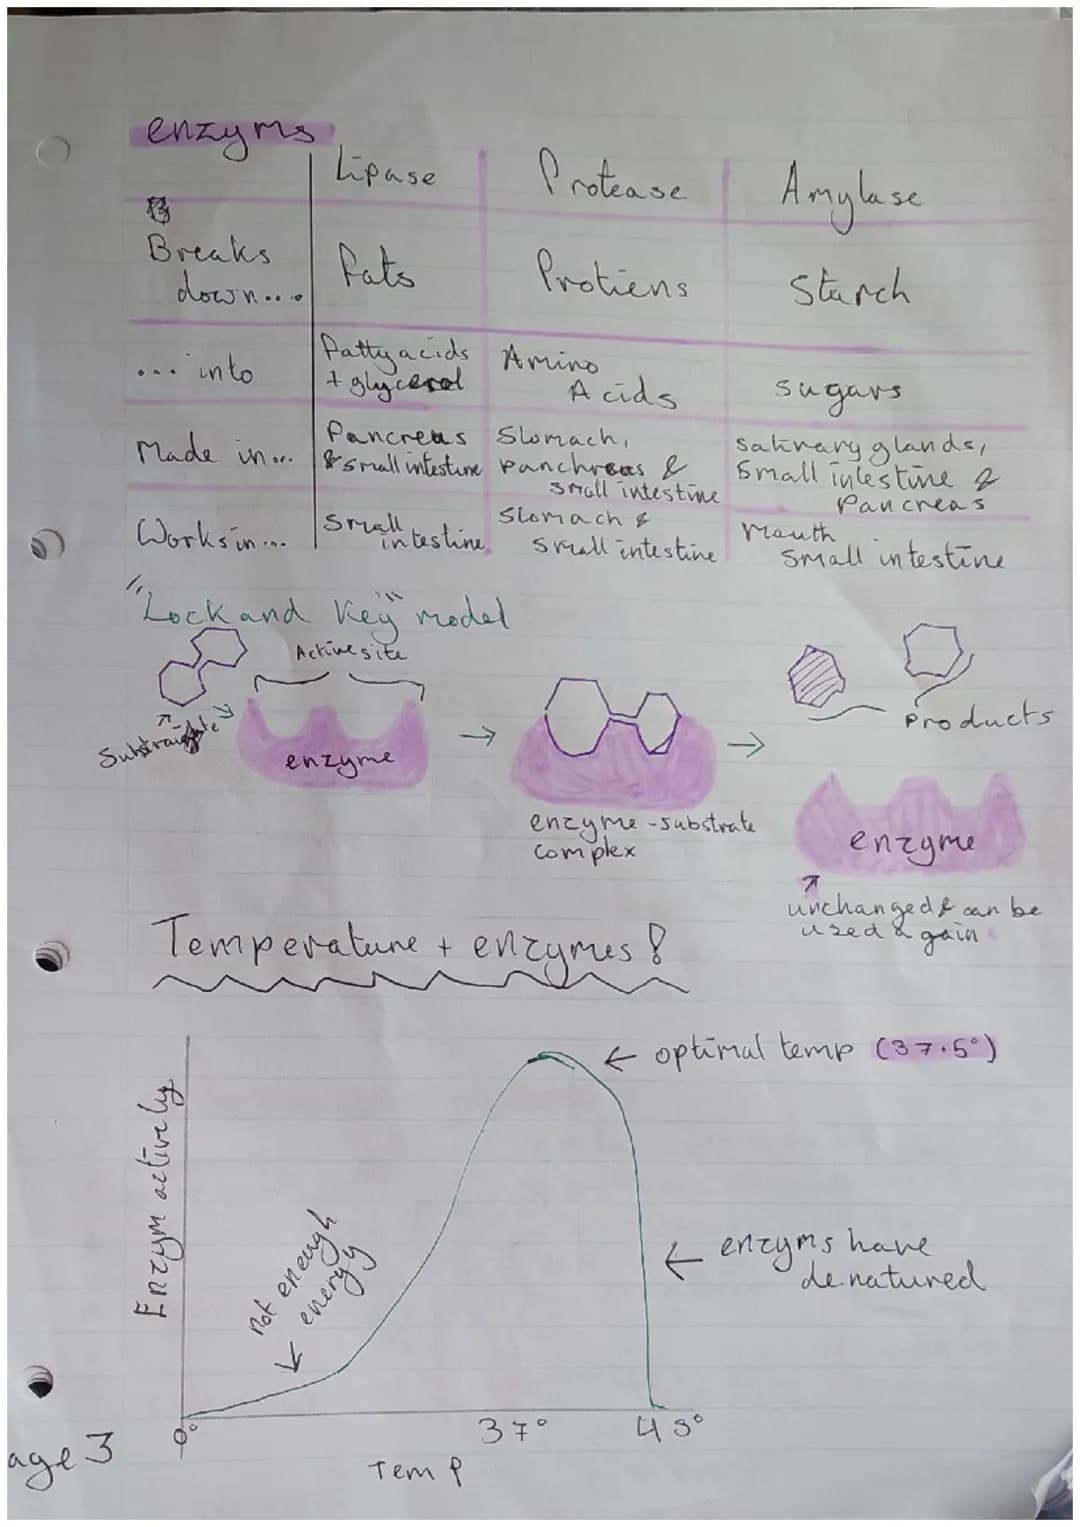 enzyms
Lipase Protease Amylase
Breaks
down.... fats Protiens Starch
... into Fatty acids
+ glycerol Amino
Acids sugars
Made in... Pancreas
& small intestine Stomach,
panchreas &
small intestine salivary glands,
small intestine &
Pancreas
Works in... Small
intestine Stomach &
small intestine Mouth
small intestine
"Lock and Key" model
Active site
Substrate
enzyme
enzyme-substrate
complex
Products
enzyme
unchanged & can be
used again
Temperature + enzymes!
optimal temp (37.5°)
Enzym actively
not enough
energy
enzyms have
denatured
0° 37° 45°
Temp
age 3